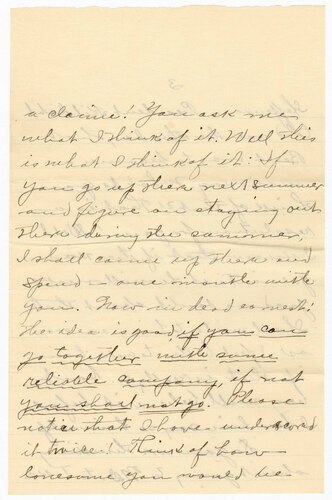 a claim! You ask me
what I think of it. Well this
is what I think of it: If
you go up there next summer
and figure on staying out
there during the summer,
I shall come up there and
spend - one month with
you. Now in dead earnest:
the idea is good, if you can
go together with some
reliable company, if not
you shall not go. Please
notice that I have underscored
it twice! Think of how
lonesome you would be